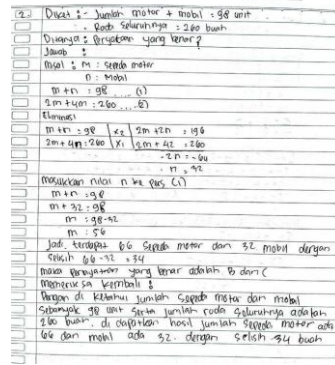 2. Dikat : - Jumlah motor + mobil = 98 unit
- Roda seluruhnya = 260 buah
Ditanya : Pernyataan yang benar?
Jawab :
Misal : M : Sepeda motor
n : Mobil
m + n = 98 ... (1)
2m + 4m : 260 ... 2)
Eliminasi
m + n = 98 | x2 | 2m + 2n = 196
2m + 4n = 260 | x1 | 2m + 42 = 260
-2n = -64
n = 32
masukkan nilai n ke pers (1)
m + n = 98
m + 32 = 98
m = 98 - 32
m = 56
Jadi, terdapat 66 Sepeda motor dan 32 mobil dengan
Selisih 66 - 32 = 34
maka pernyataan yang benar adalah B dan C
memeriksa kembali :
Dengan di ketahui jumlah sepeda motor dan mobil
sebanyak 98 unit serta jumlah roda seluruhnya adalah
260 buah, di dapatkan hasil jumlah sepeda motor ada
66 dan mobil ada 32. dengan selisih 34 buah